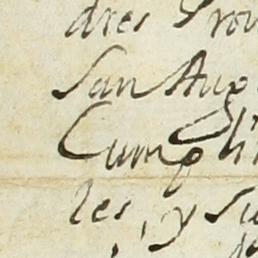 dres Prov
San Aug
Cumpli
les, y Su